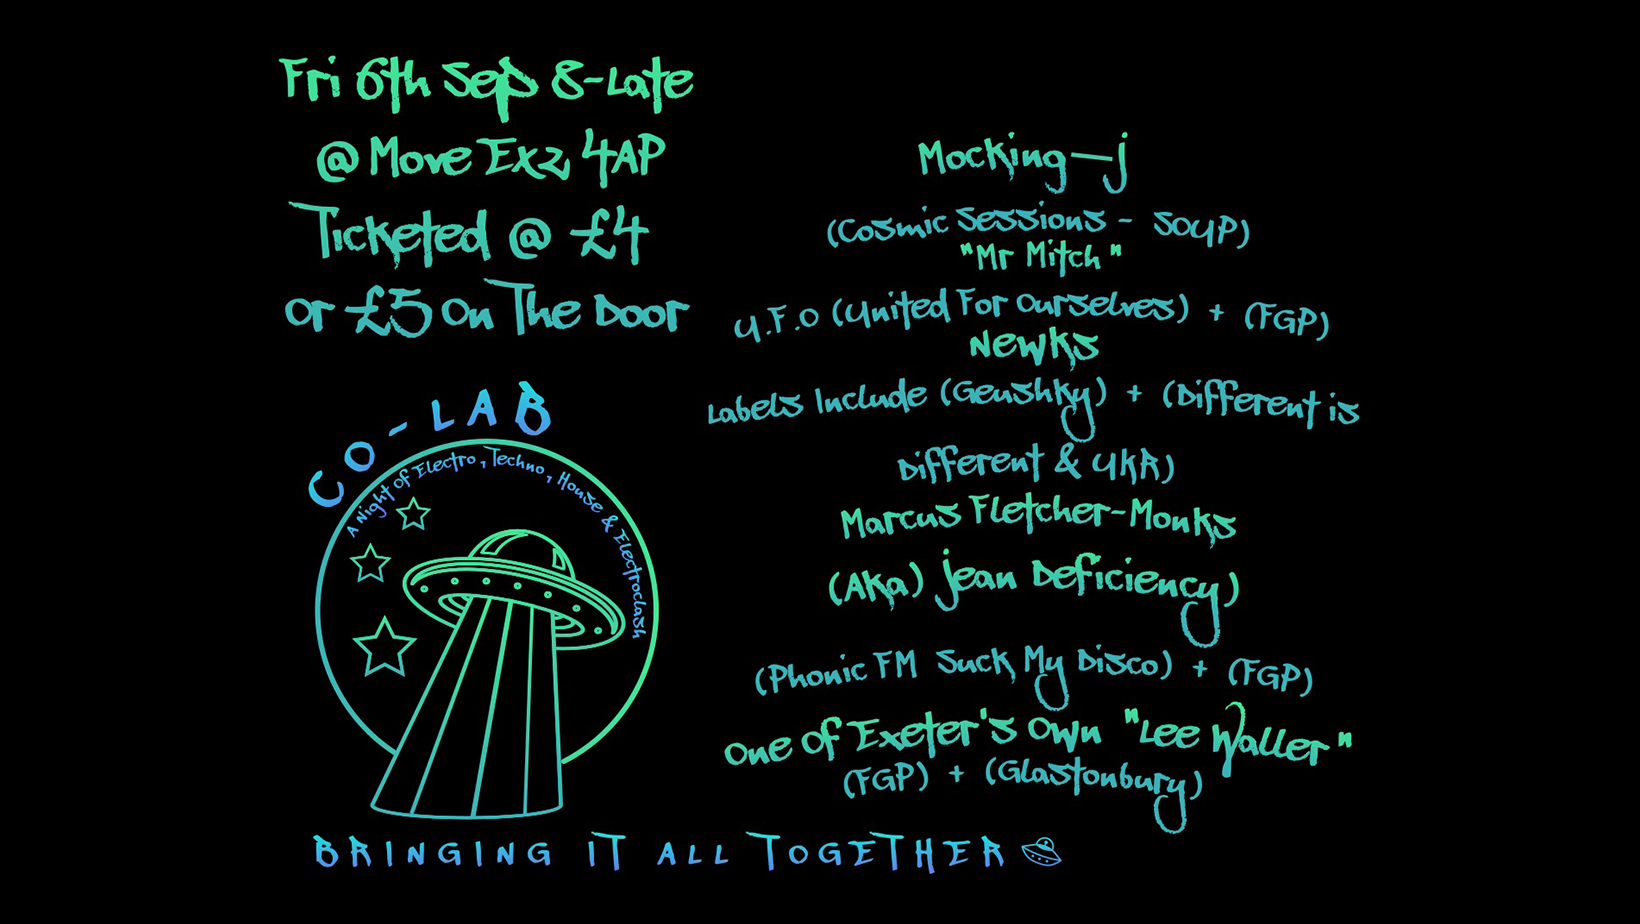 Fri 6th Sep 8-Late
@ Move Ex2 4AP
Ticketed @ £4
Or £5 On The Door
CO-LAB
A Night of Electro, Techno, House & Electroclash
Mocking-j
(Cosmic Sessions - SOUP)
"Mr Mitch"
U.F.O (United For Ourselves) + (FGP)
Newks
Labels Include (Geushky) + (Different is
Different & UKR)
Marcus Fletcher-Monks
(Aka) Jean Deficiency)
(Phonic FM Suck My Disco) + (FGP)
One Of Exeter's Own "Lee Waller"
(FGP) + (Glastonbury)
BRINGING IT ALL TOGETHER